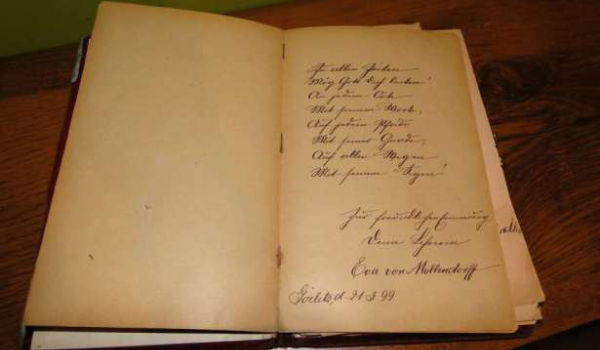 Zu allen Zeiten
Mög Gott Dich leiten!
An jedem Orte
Mit seinem Worte,
Auf jedem Pfade
Mit seiner Gnade,
Auf allen Wegen
Mit seinem Segen!
Zur freundlichen Erinnerung
Deine Lehrerin
Eva von Mollendorff
Görlitz, d. 21.3.99.